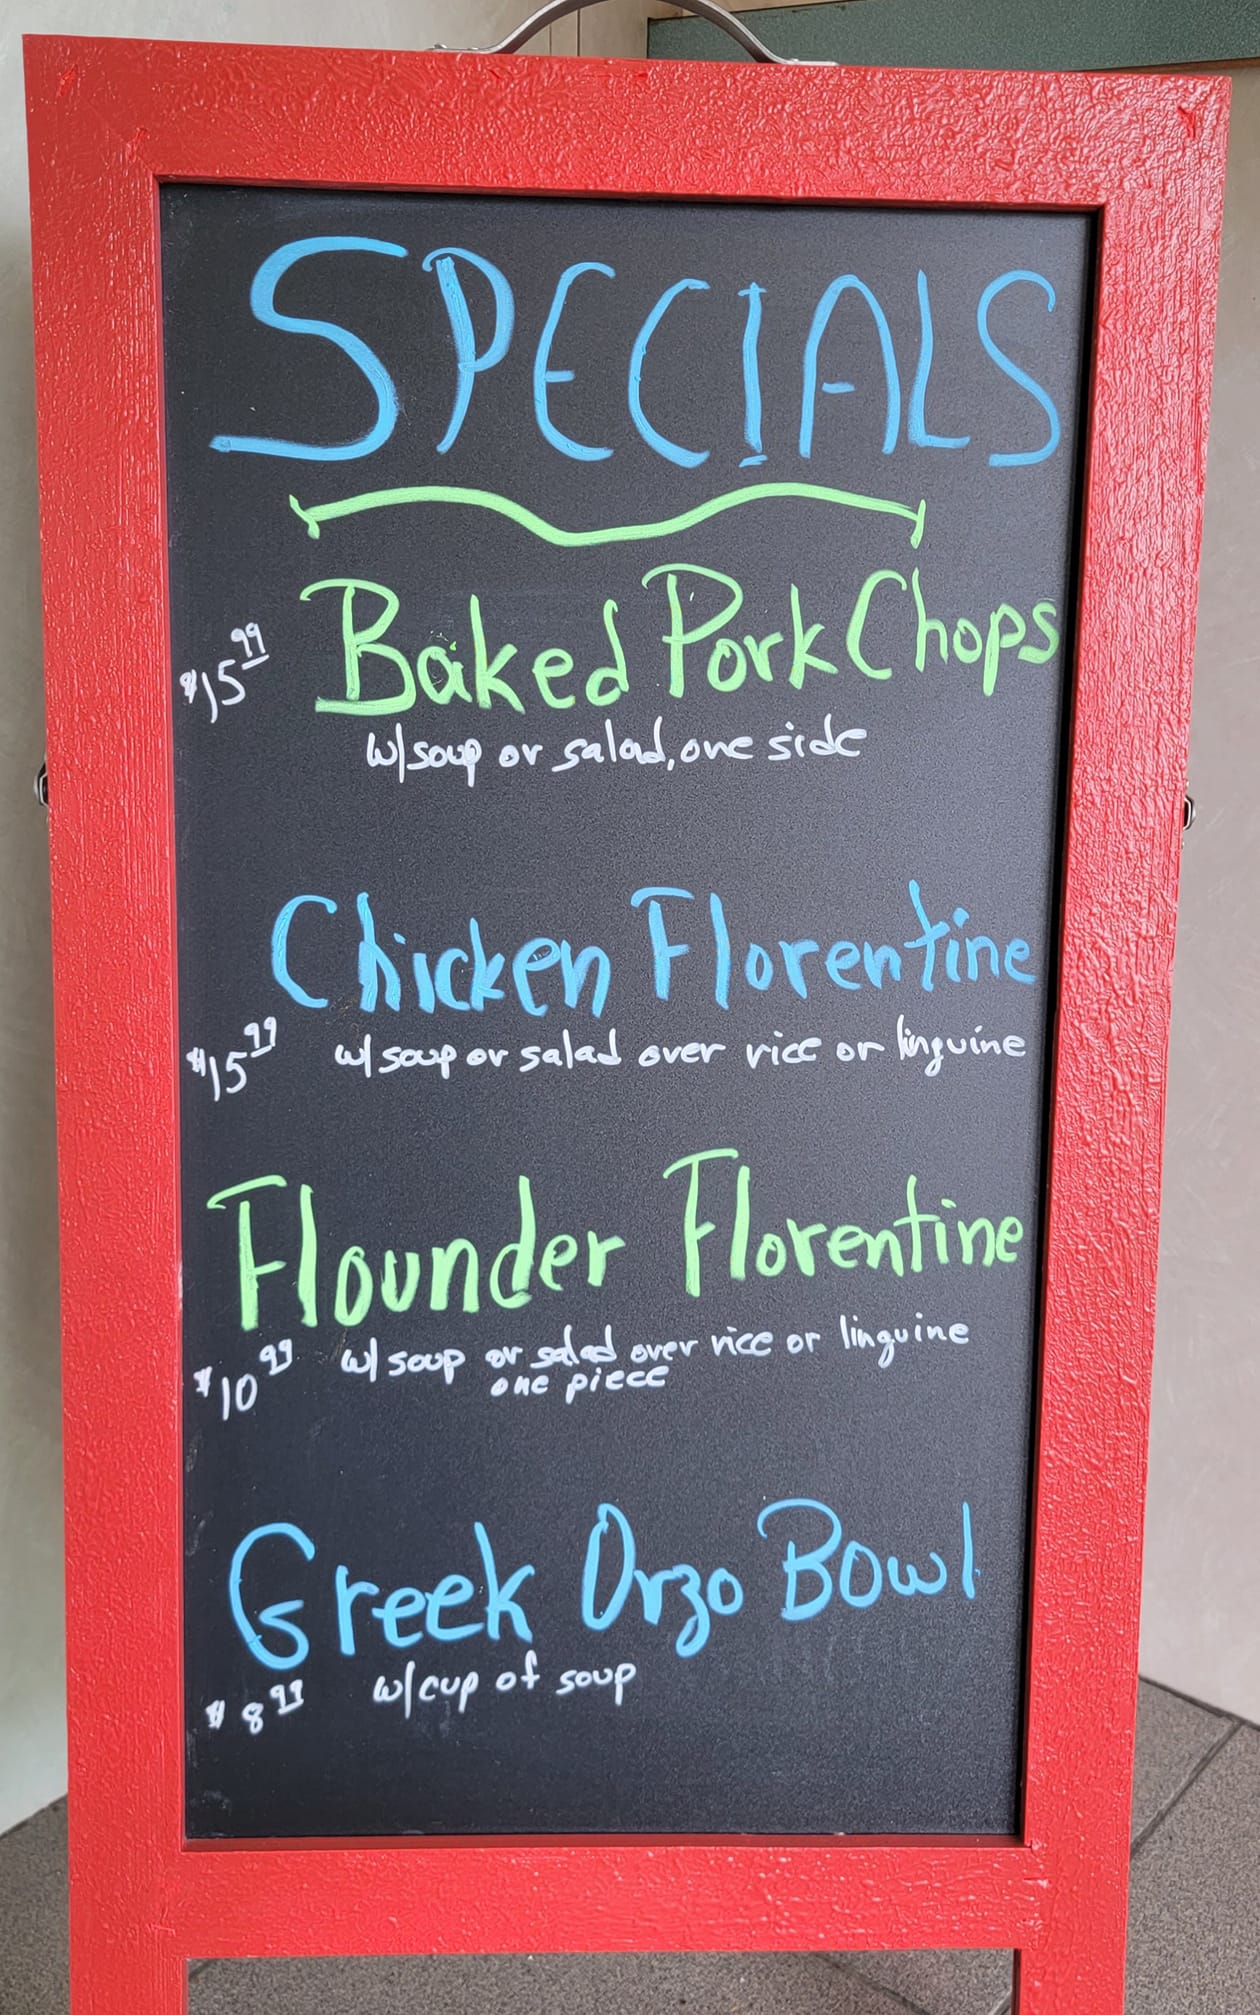 SPECIALS
Baked Pork Chops
$15.99
w/soup or salad, one side
Chicken Florentine
$15.99
w/ soup or salad over rice or linguine
Flounder Florentine
$10.99
w/ soup or salad over rice or linguine
one piece
Greek Orzo Bowl
$8.99
w/cup of soup